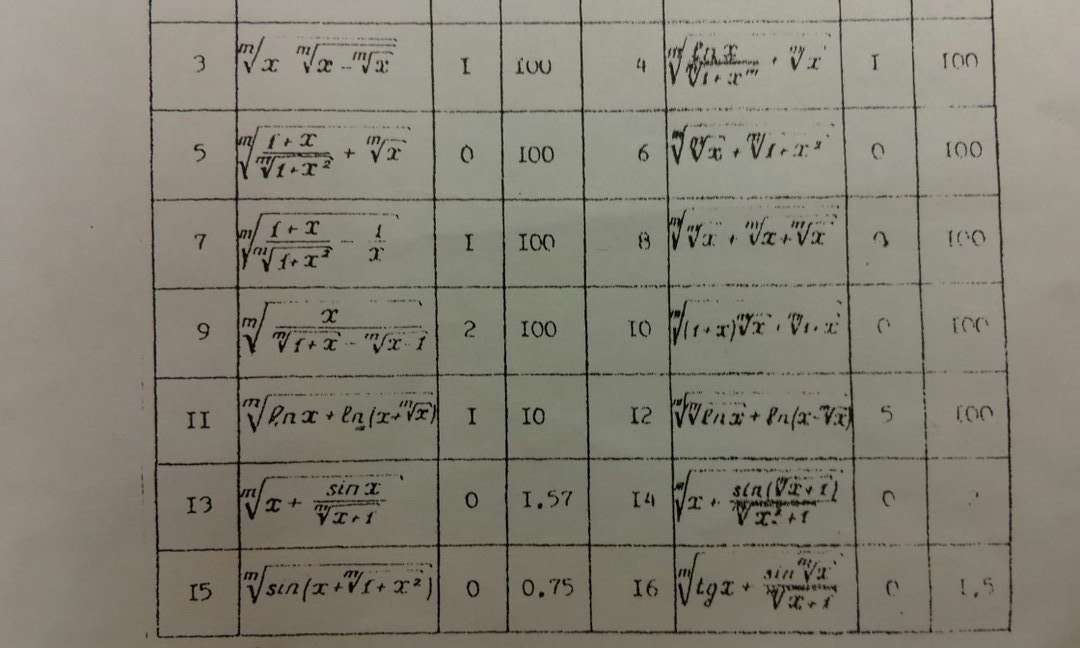 3 ᵐ√(x ᵐ√(x - ᵐ√x)) I I00 4 ᵐ√(ln x / ᵐ√(1 + xᵐ) + ᵐ√x) I I00
5 ᵐ√((1 + x) / ᵐ√(1 + x²) + ᵐ√x) 0 I00 6 ᵐ√(ᵐ√x + ᵐ√(1 + x²)) 0 I00
7 ᵐ√((1 + x) / ᵐ√(1 + x²) - 1/x) I I00 8 ᵐ√(ᵐ√x + ᵐ√(x + ᵐ√x)) I00
9 ᵐ√(x / (ᵐ√(1 + x) - ᵐ√(x - 1))) 2 I00 I0 ᵐ√((1 + x) ᵐ√x + ᵐ√(1 + x)) 0 I00
II ᵐ√(ln x + ln(x + ᵐ√x)) I I0 I2 ᵐ√(ᵐ√(ln x) + ln(x - ᵐ√x)) 5 I00
I3 ᵐ√(x + sin x / ᵐ√(x + 1)) 0 I.57 I4 ᵐ√(x + sin(ᵐ√(x + 1)) / ᵐ√(x² + 1)) 0
I5 ᵐ√(sin(x + ᵐ√(1 + x²))) 0 0.75 I6 ᵐ√(tg x + sin ᵐ√x / ᵐ√(x + 1)) 0 I.5